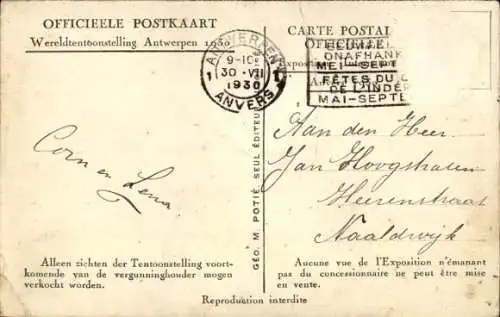 OFFICIEELE POSTKAART
Wereldtentoonstelling Antwerpen 1930
CARTE POSTAL
OFFICIELLE
ANTWERPEN
9-10
1 30·VII 1
1930
ANVERS
ONAFHANK
MEI-SEPT
FÊTES DU C
DE L'INDÉP
MAI-SEPTE
Corn en Lena
Aan den Heer
Jan Hoogshaten
Heerenstraat
Naaldwijk
GÉO. M. POTIÉ, SEUL ÉDITEUR
Alleen zichten der Tentoonstelling voort-
komende van de vergunninghouder mogen
verkocht worden.
Aucune vue de l'Exposition n'émanant
pas du concessionnaire ne peut être mise
en vente.
Reproduction interdite